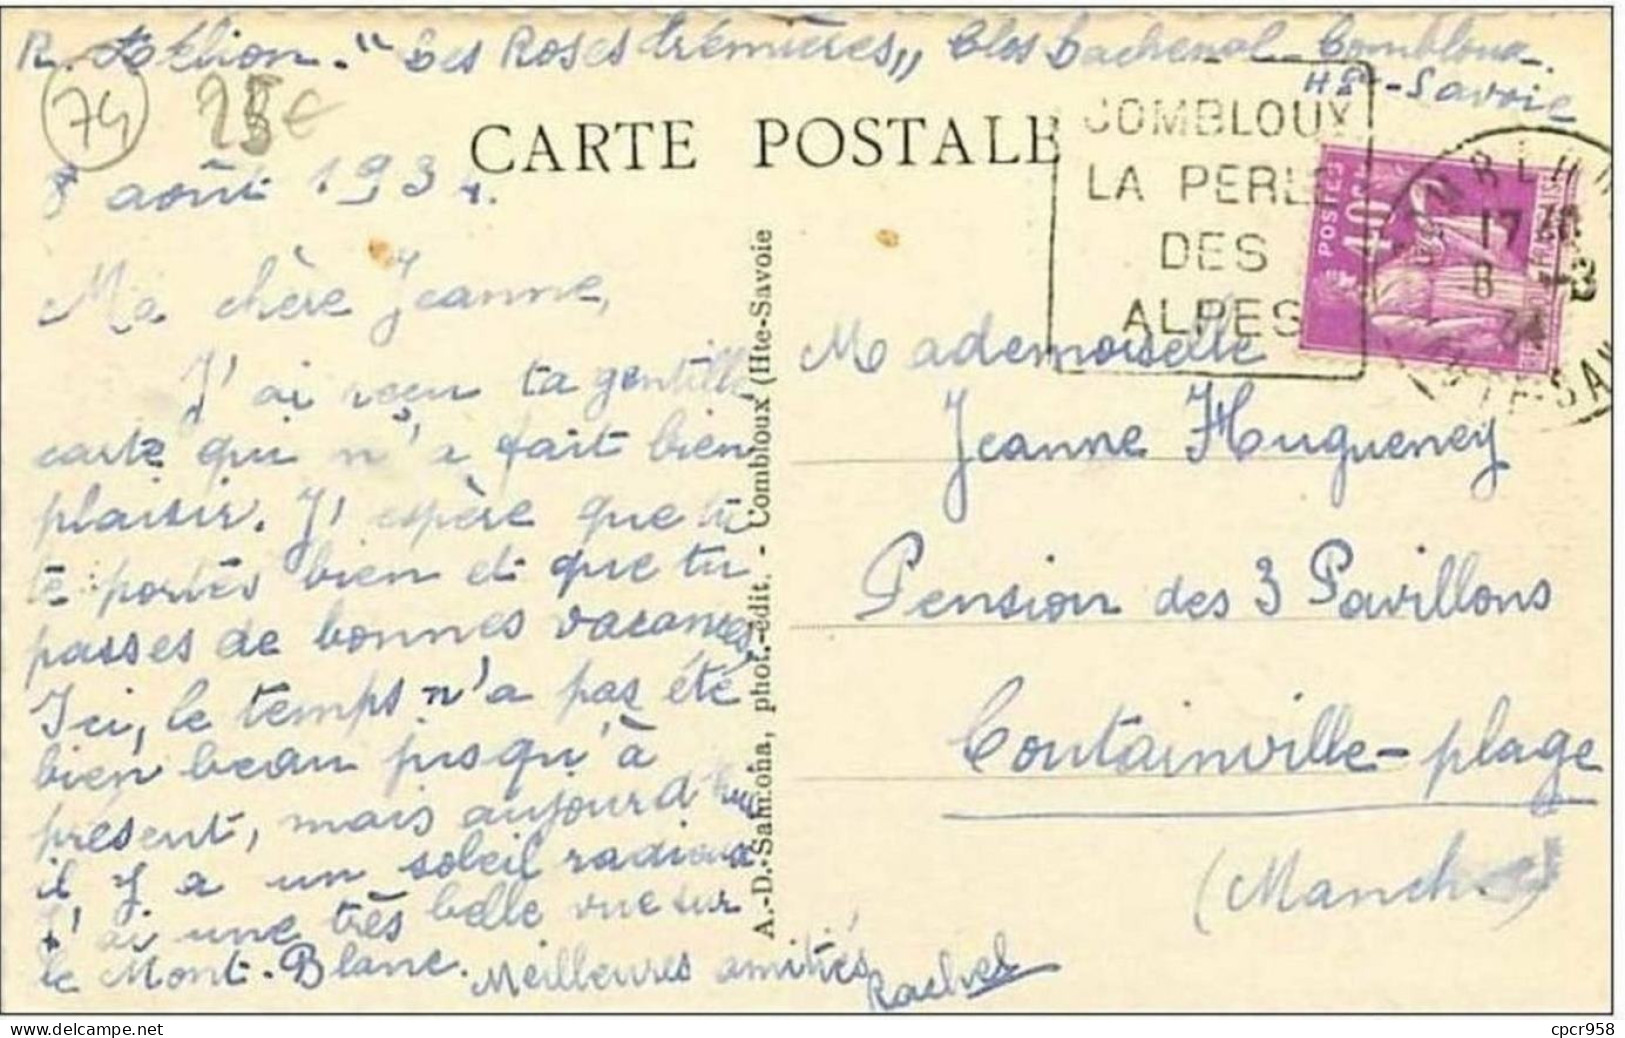 R. "Les Roses trémières,, Clos Bachenal - Combloux.
Hte-Savoie
74
CARTE POSTALE
COMBLOUX
LA PERLE
DES
ALPES
POSTES
40c
17 30
8 -8
34
8 août 1934.
Ma chère Jeanne,
J'ai reçu ta gentille
carte qui m'a fait bien
plaisir. J'espère que tu
te portes bien et que tu
passes de bonnes vacances,
Ici, le temps n'a pas été
bien beau jusqu'à
présent, mais aujourd'hui
il y a un soleil radieux
J'ai une très belle vue sur
le Mont-Blanc. Meilleures amitiés
Rachel
A.-D. Samiona, phot.-édit. - Combloux (Hte-Savoie
Mademoiselle
Jeanne Hugueney
Pension des 3 Pavillons
Coutainville-plage
(Manche)
cpcr958